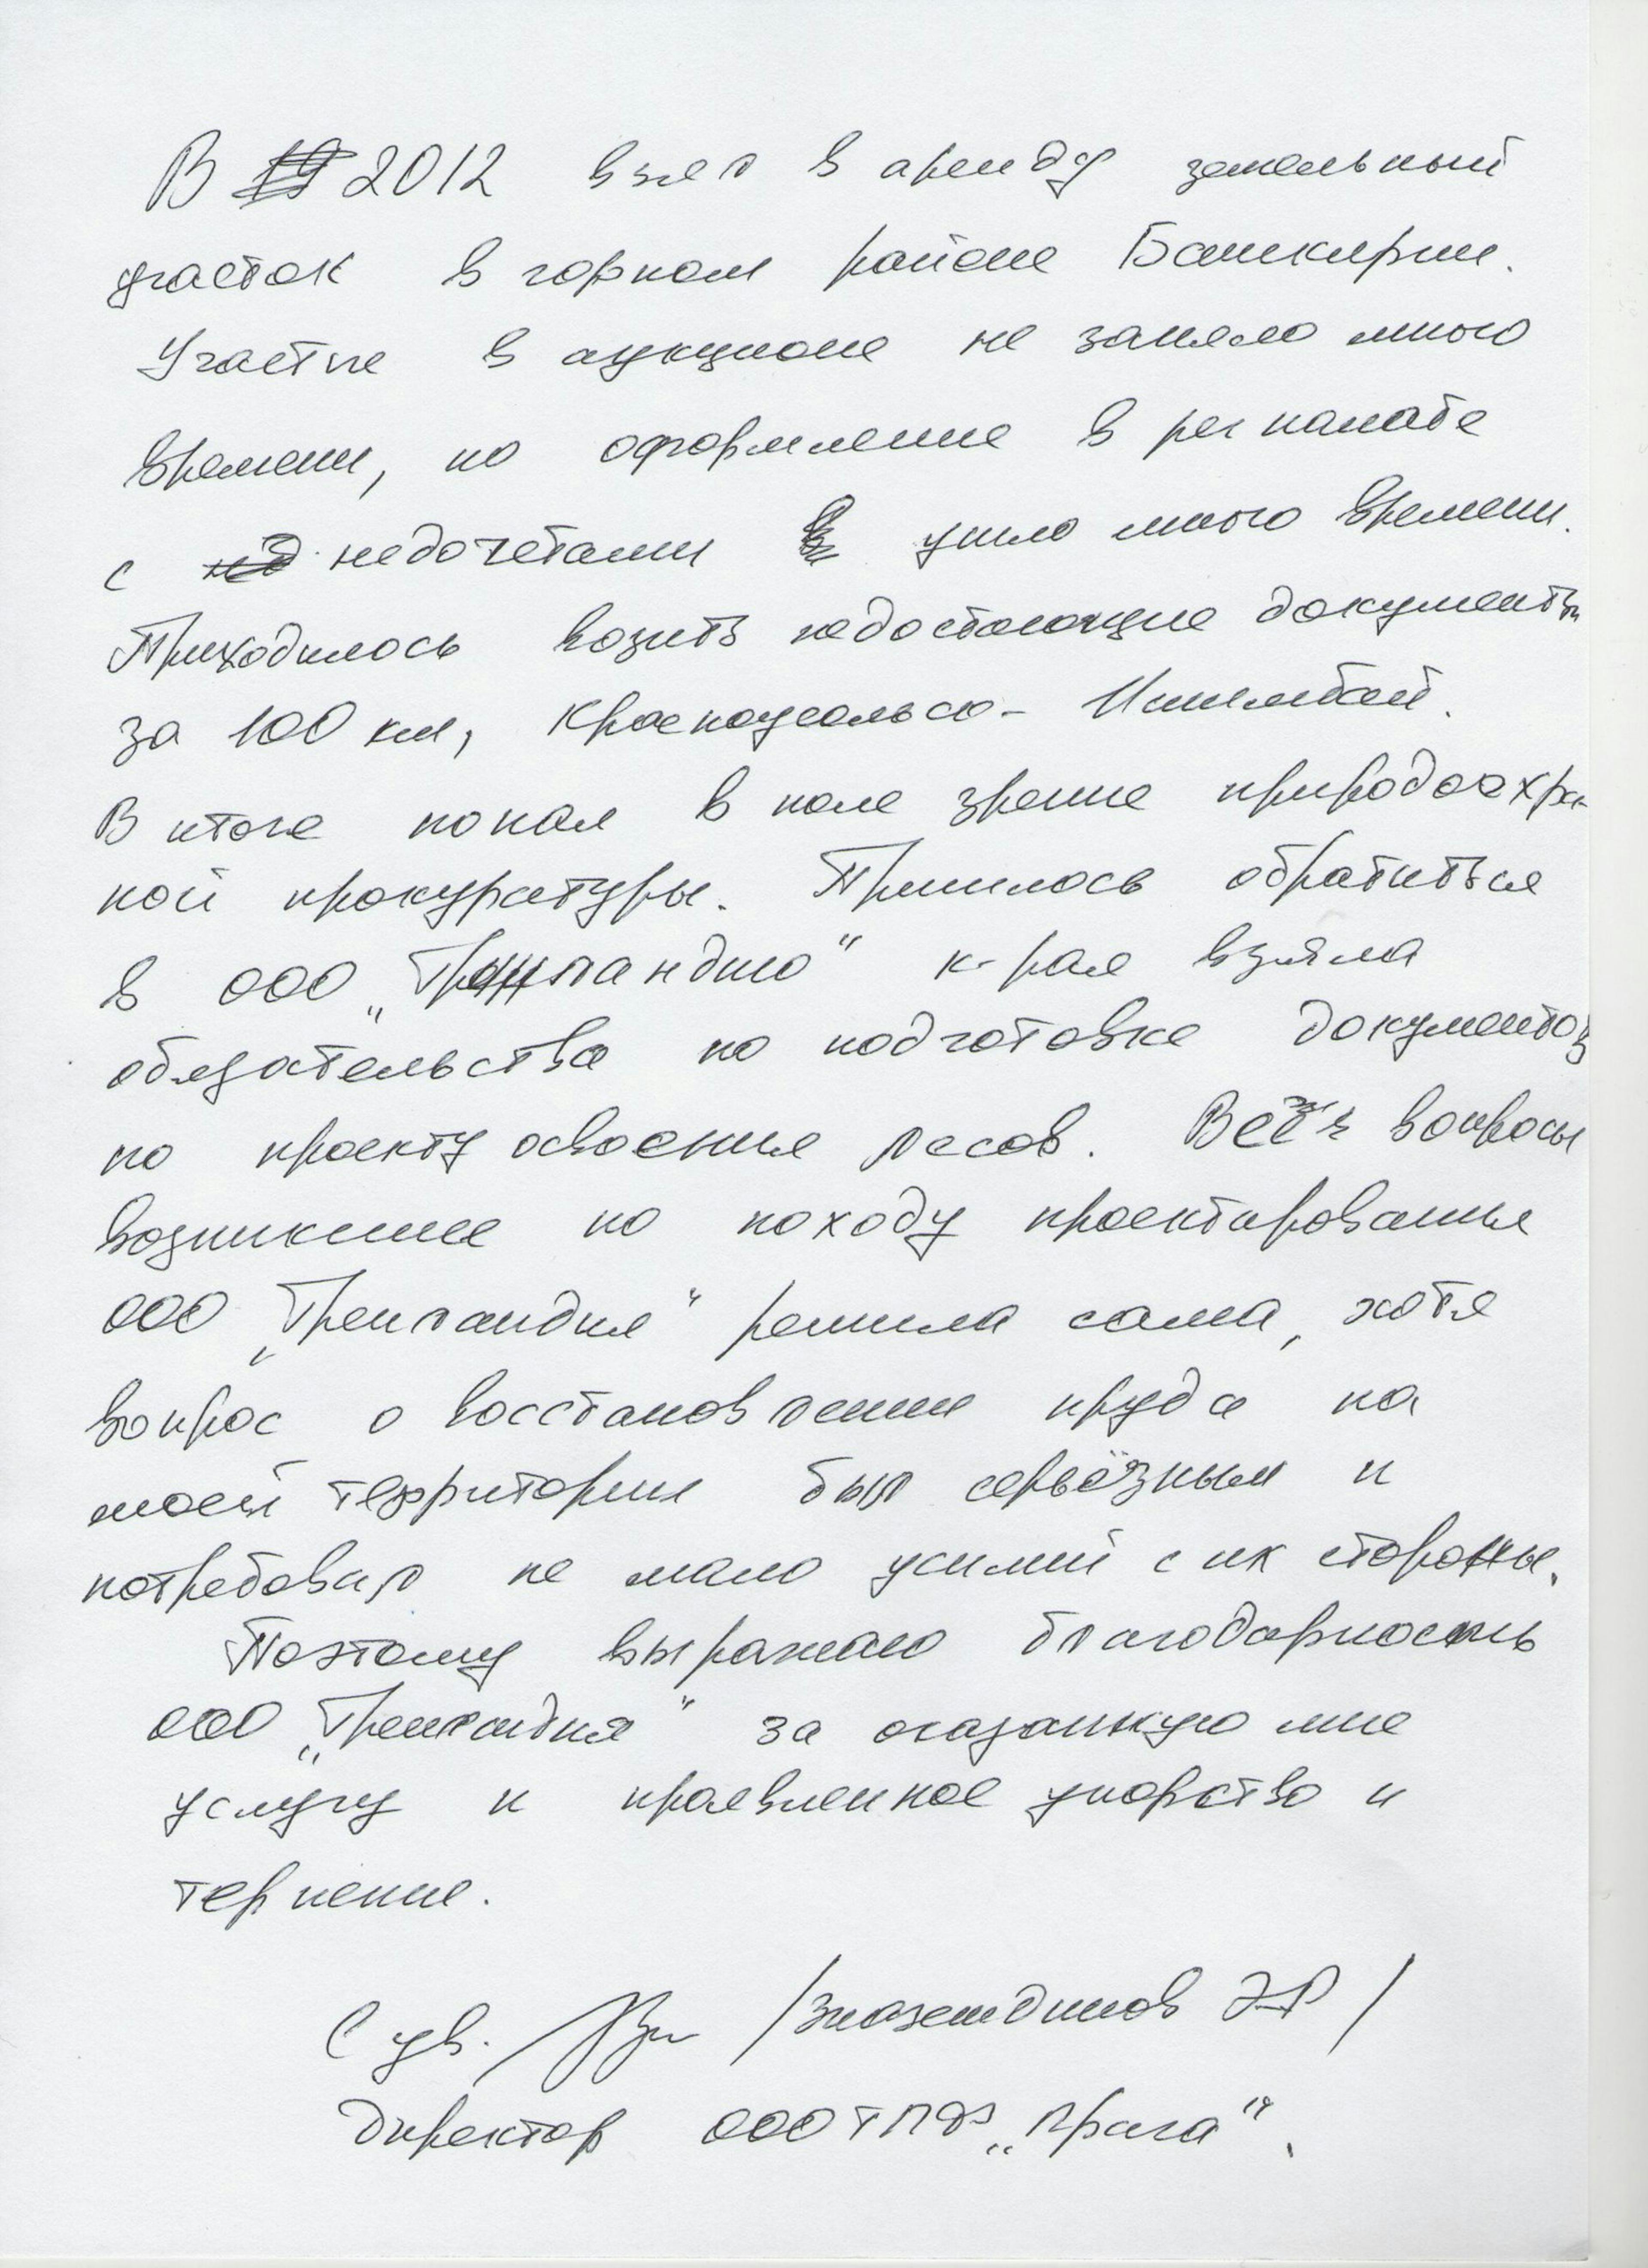 В 2012 взял в аренду земельный
участок в горном районе Башкирии.
Участие в аукционе не заняло много
времени, но оформление в рег палате
с недочётами ушло много времени.
Приходилось возить недостающие документы
за 100 км, Красноусольск - Ишимбай.
В итоге попал в поле зрение природоохран
ной прокуратуры. Пришлось обратиться
в ООО „Гренландию" к-рая взяла
обязательства по подготовке документов
по проекту освоения лесов. Все вопросы
возникшие по походу проектирования
ООО „Гренландия" решила сама, хотя
вопрос о восстановлении пруда на
моей территории был серьёзным и
потребовал не мало усилий с их стороны.
Поэтому выражаю благодарность
ООО „Гренландия" за оказанную мне
услугу и проявленное упорство и
терпение.
С ув. /Зиазетдинов Э.Р/
Директор ООО ТПФ „Прага".